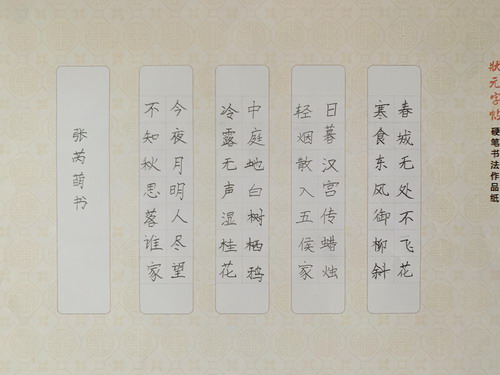 状元字帖
硬笔书法作品纸
春城无处不飞花
寒食东风御柳斜
日暮汉宫传蜡烛
轻烟散入五侯家
中庭地白树栖鸦
冷露无声湿桂花
今夜月明人尽望
不知秋思落谁家
张芮萌书